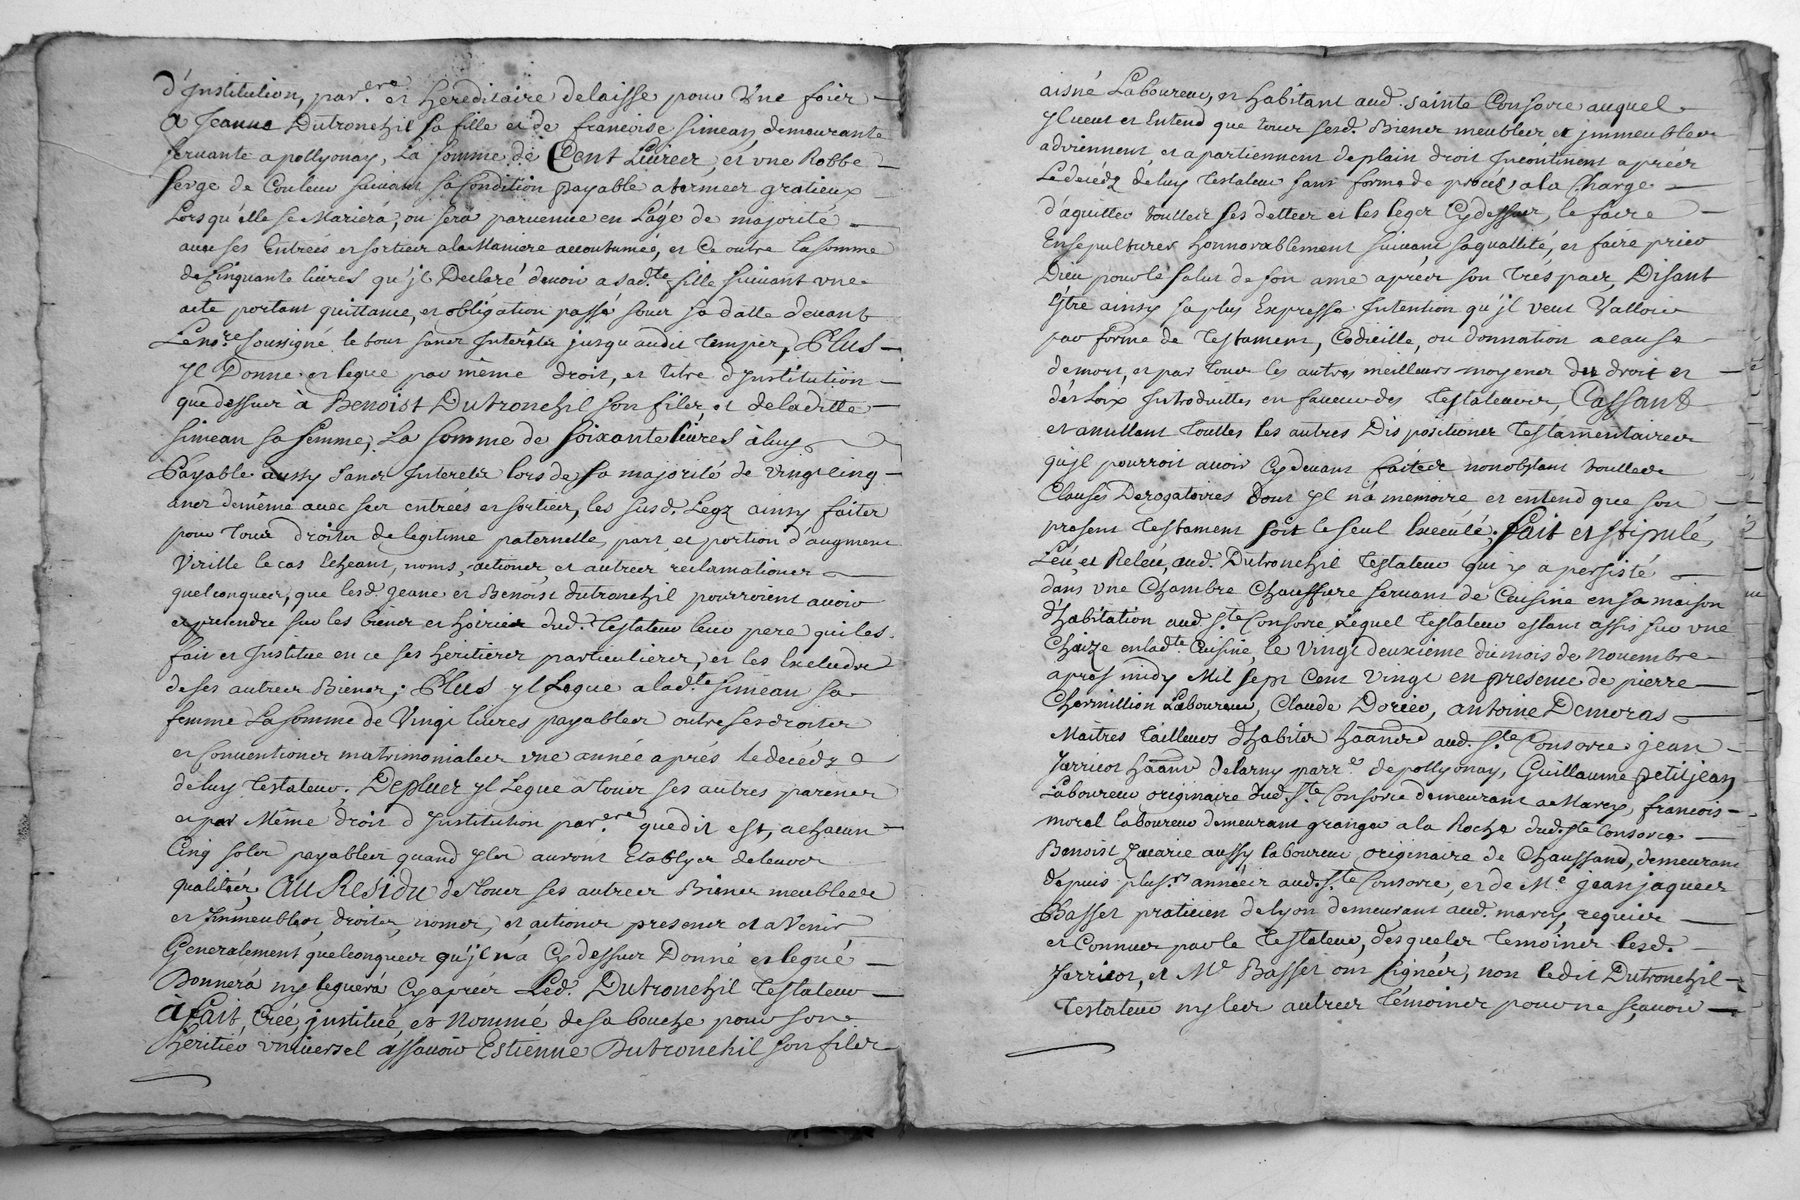 d'Institution, par.ere et hereditaire delaisse pour Une fois
A Jeanne Dutronchil sa fille et de francoise simean demeurante
servante a pollyonay, La somme de Cent Livres, et vne Robbe
serge de Couleur suivant sa Condition payable a termes gratieux
Lorsqu'elle se Mariera, ou sera parvenue en L'age de majorité
avec ses Entrées et sorties ala Maniere accoutumée, et Ce outre la somme
de Cinquante livres qu'jl Declaré devoir a sad.te fille suivant vne
acte portant quittance, et obligation passé sous sa datte devant
Le no.re soussigné le tout sans Interêts jusqu'audit temps, PLUS
Yl Donne et legue par même droit, et titre d'Institution
que dessus à Benoist Dutronchil son fils, et deladitte
simean sa femme, La somme de soixante livres à luy
Payable aussy sans Interets lors de sa majorité de vingt cinq
ans demême avec ses entrées et sorties, les susd. Legz ainsy faites
pour tous droits de legitime paternelle, part et portion d'augment
Virille le cas Echeant, noms, actions, et autres reclamations
quelconques, que lesd. jeane et Benoist dutronchil pourroient avoir
et pretendre sur les biens et hoiries dud. Testateur leur pere qui les
fait et Institue en ce ses heritiers particuliers, et les Exclud
de ses autres Biens; Plus yl Legue a lad.te simean sa
femme La somme de Vingt livres payables outre ses droits
et Conventions matrimoniales vne année aprés le decédz
de luy testateur, De plus yl Legue a tous ses autres parens
et par Même droit d'Institution par.ere que dit est, a chacun
Cinq sols payables quand yls auront Etablyes de leurs
qualités, AU Residu de tous ses autres Biens meubles
et Immeubles, droits, noms, et actions presens et a Venir
Generalement quelconques qu'jl n'a Cy dessus Donné et legué
Donnera ny leguera Cy aprés Led. Dutronchil Testateur
à fait, Créé, institué, et Nommé de sa bouche pour son
Heritier vniversel assavoir Estienne Dutronchil son fils
aisné Laboureur, et habitant aud. sainte Consorce auquel
yl veut et Entend que tous sesd. Biens meubles et jmmeubles
adviennent et apartiennent de plain droit Incontinent aprés
Le decédz de luy testateur sans forme de procés, a la Charge
d'aquitter touttes ses dettes et les legs Cy dessus, le faire
Ensepulturer honnorablement suivant sa quallité, et faire prier
Dieu pour le salut de son ame aprés son trespas, Disant
Estre ainsy sa plus Expresse Intention qu'jl veut Valloir
par forme de Testament, Codicille, ou donnation acause
de mort, et par tous les autres meilleurs moyens de droit et
des Loix Introduittes en faveur des Testateurs, Cassant
et anullant touttes les autres Dispositions Testamentaires
qu'jl pourroit avoir Cy devant faites nonobstant touttes
Clauses Derogatoires dont yl n'a memoire et entend que son
present Testament soit le seul Executé, fait et stipulé,
Leü et Releü, aud. Dutronchil Testateur qui y a persisté
dans vne Chambre Chauffure servant de Cuisine en sa maison
d'habitation aud. S.te Consorce Lequel Testateur estant assis sur vne
Chaize en lad.te Cuisine, le Vingt deuxieme du mois de Novembre
aprés midy Mil sept Cent Vingt en presence de pierre
Charmillion Laboureur, Claude Dorier, antoine Demoras
Maîtres Tailleurs d'habits haans aud. S.te Consorce jean
Jarricot haant delarny parr.e de pollyonay, Guillaume petitjean
Laboureur originaire dud. S.te Consorce demeurant a Marcy, francois
moral laboureur demeurant granger a la Roche dud. Ste Consorce
Benoist Zacarie aussy laboureur originaire de Chaussand, demeurant
depuis plus.rs années aud. S.te Consorce, et de M.e jean jaques
Basset praticien de lyon demeurant aud. marcy requis
et Connus par le Testateur, desquels témoins lesd.
Jarricot, et M.e Basset ont signés, non ledit Dutronchil
Testateur ny les autres témoins pour ne sçavoir